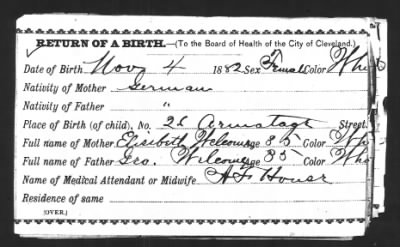 RETURN OF A BIRTH.—(To the Board of Health of the City of Cleveland.)
Date of Birth Nov 4 1882 Sex Female Color Whi
Nativity of Mother German
Nativity of Father "
Place of Birth (of child), No. 26 Street.
Full name of Mother Elisibeth Welcome Age 35 Color Whi
Full name of Father Geo. Welcome Age 35 Color Whi
Name of Medical Attendant or Midwife Houser
Residence of same
(OVER.)